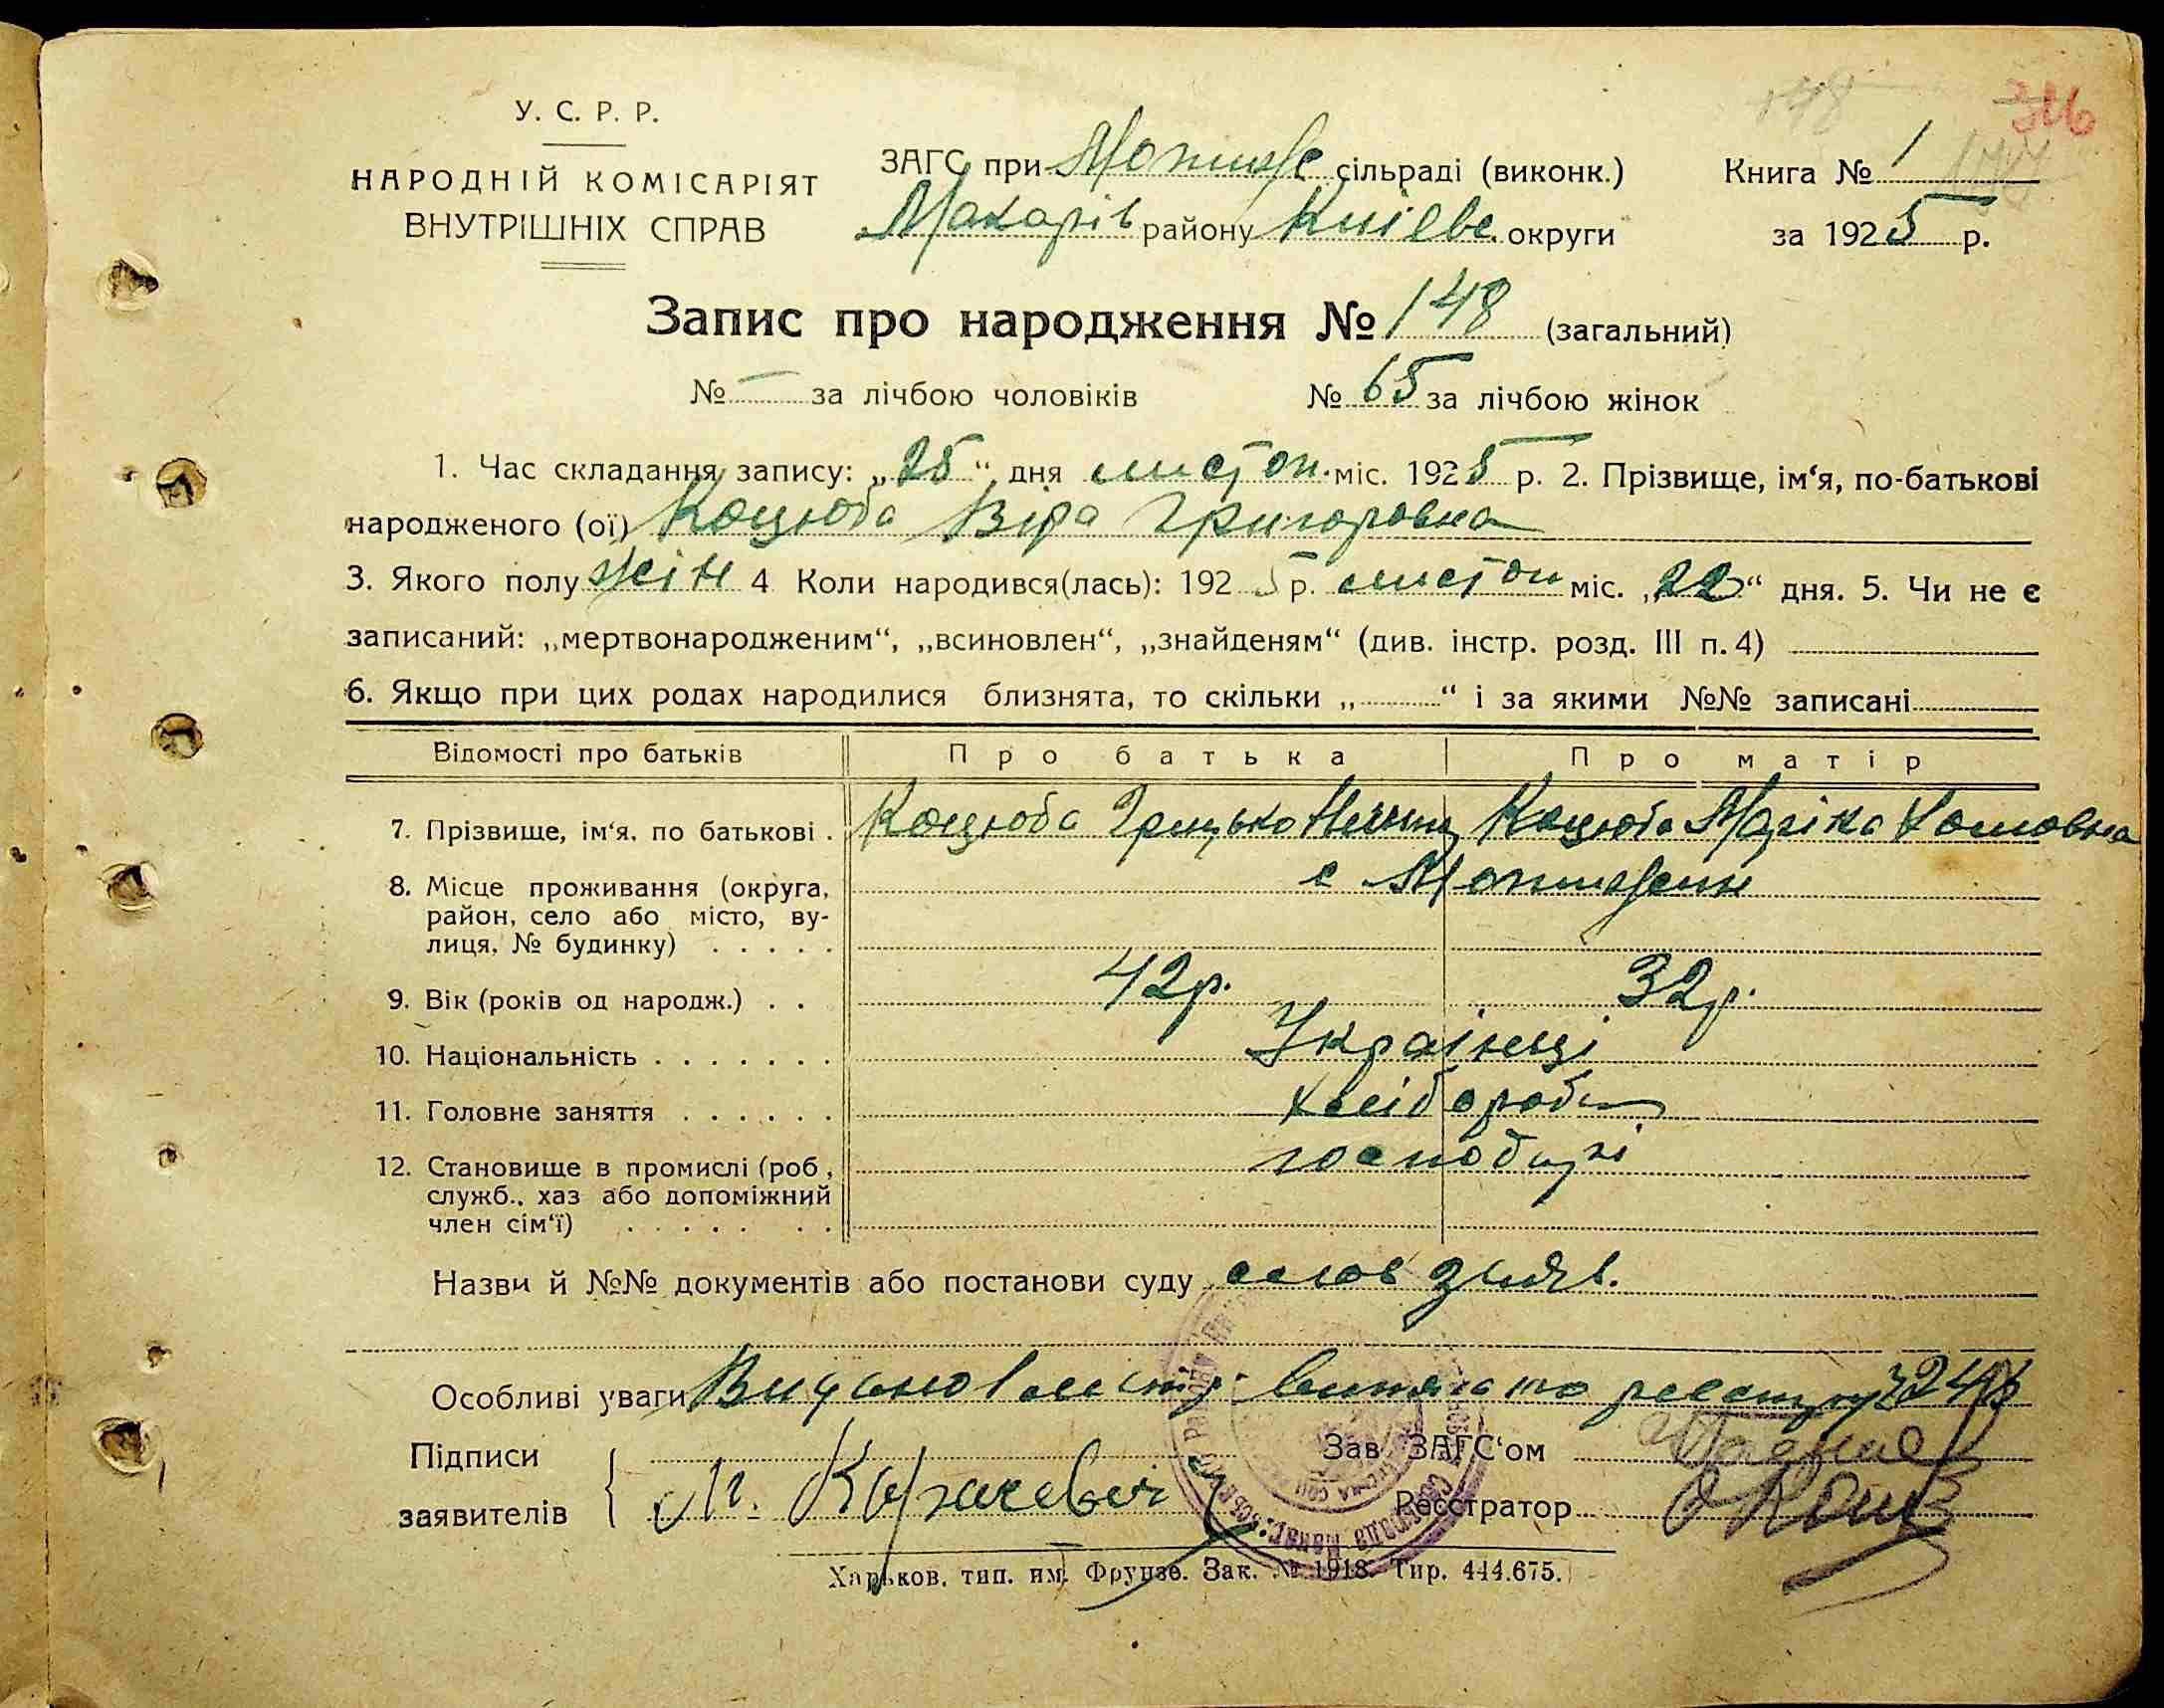 У. С. Р. Р.
НАРОДНІЙ КОМІСАРІЯТ
ВНУТРІШНІХ СПРАВ
148
316
ЗАГС при Мотиже сільраді (виконк.)
Книга № 1
Макарів району Київс. округи
за 1925 р.
Запис про народження № 148 (загальний)
№ — за лічбою чоловіків № 65 за лічбою жінок
1. Час складання запису: „25“ дня листоп. міс. 1925 р. 2. Прізвище, ім‘я, по-батькові
народженого (ої) Коцюба Віра Григоровна
3. Якого полу жін 4 Коли народився(лась): 1925 р. листоп міс. „22“ дня. 5. Чи не є
записаний: „мертвонародженим“, „всиновлен“, „знайденям“ (див. інстр. розд. III п. 4)
6. Якщо при цих родах народилися близнята, то скільки „ “ і за якими №№ записані
Відомості про батьків Про батька Про матір
7. Прізвище, ім‘я, по батькові . Коцюба Грицько Коцюба Маріка Хомовна
8. Місце проживання (округа, с Мотижин
район, село або місто, ву-
лиця, № будинку) . . . . .
9. Вік (років од народж.) . . 42р. 32р.
10. Національність . . . . . . . Українці
11. Головне заняття . . . . . . хлібороби
12. Становище в промислі (роб., господарі
служб., хаз або допоміжний
член сім‘ї) . . . . . . .
Назви й №№ документів або постанови суду слов заяв.
Особливі уваги Видано витяг по реестру
Підписи
заявителів
Зав. ЗАГС‘ом
Реєстратор
Харьков, тип. им. Фрунзе. Зак. № 1918. Тир. 444.675.